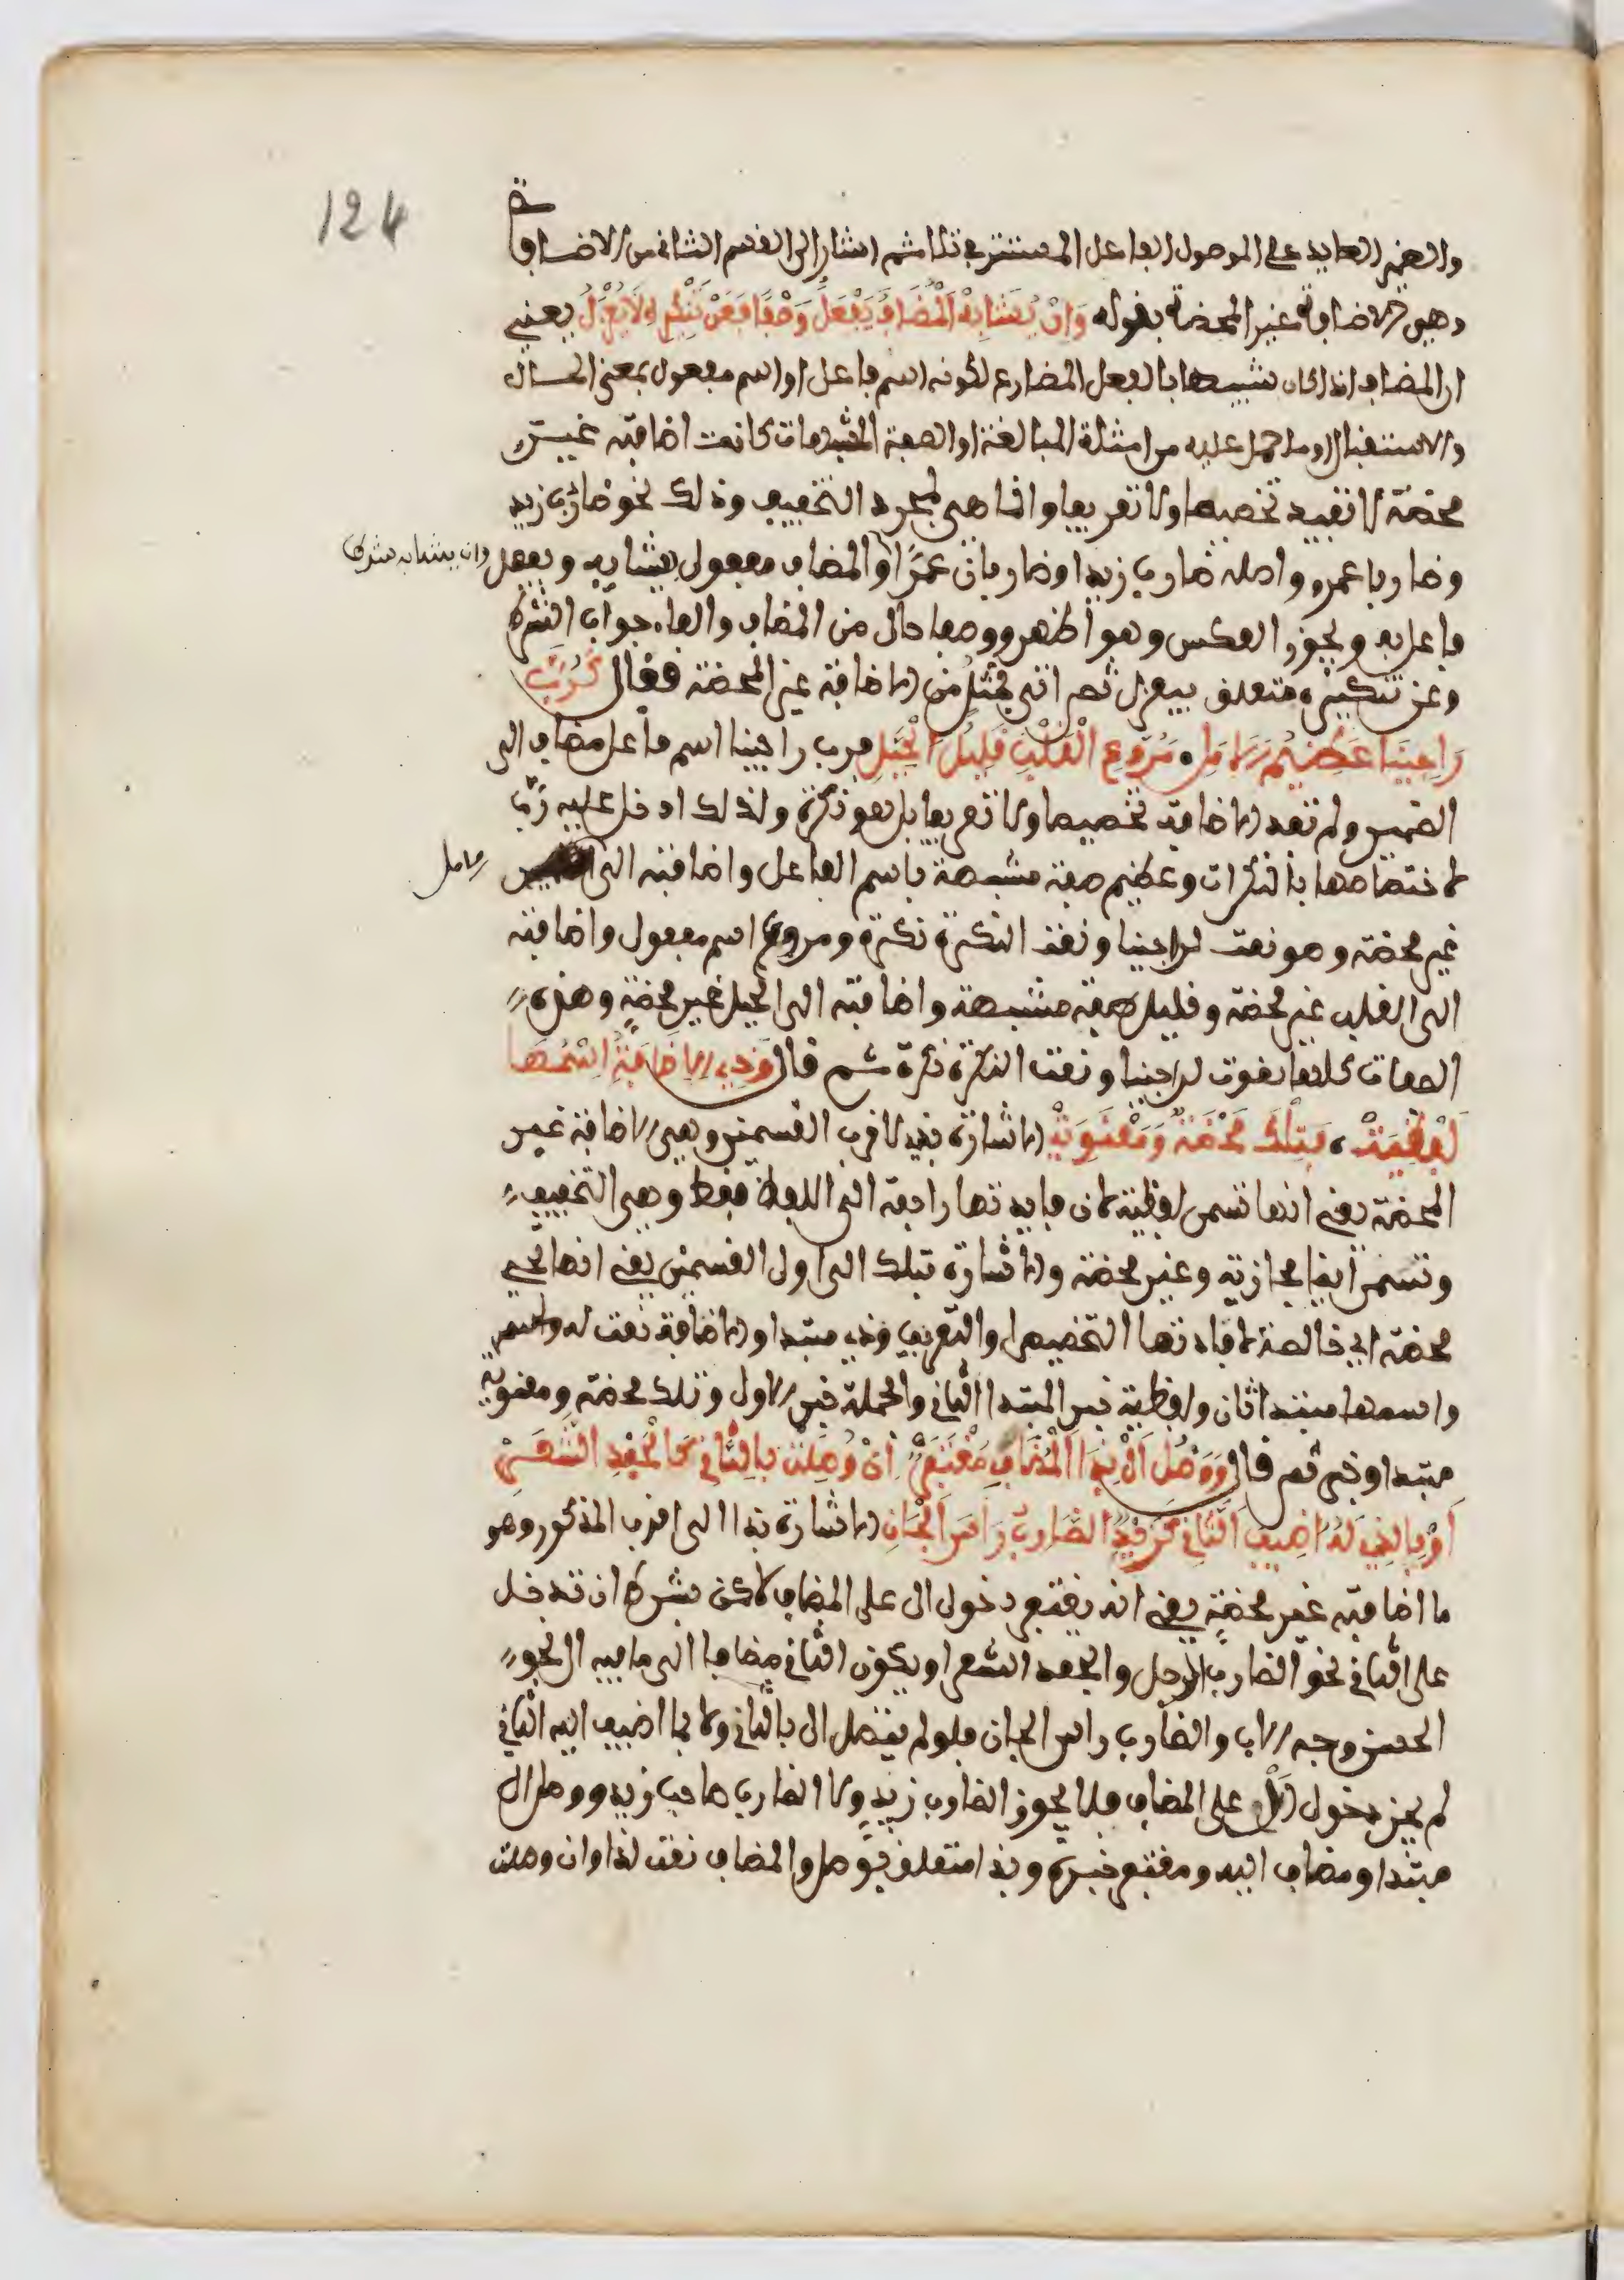 124
والضمير العايد على الموصول الفاعل المستتر في تلا ثم اشار الى القسم الثاني من الاضافة
وهي الاضافة غير المحضة بقوله وَاِنْ يُشَابِهِ الْمُضَافُ يَفْعَلُ وَصْفًا فَعَنْ تَنْكِيرِهِ لَا يُعْزَلُ يعني
ان المضاف اذا كان شبيها بالفعل المضارع لكونه اسم فاعل او اسم مفعول بمعنى الحال
والاستقبال او ما حمل عليه من امثلة المبالغة او الصفة المشبهات كانت اضافته غير
محضة لا تفيد تخصيصا ولا تعريفا وانما هي لمجرد التخفيف وذلك نحو ضارب زيد
وضاربا عمرو واصله ضارب زيدا وضاربان عمرا والمضاف مفعول بيشابه ويفعل
وان يشابه شرط
فاعل به ويجوز العكس وهو اظهر ووصفا حال من المضاف والفاء جواب الشرط
وعن تنكيره متعلق بيعزل ثم اتى بمثل من الاضافة غير المحضة فقال كَرُبَّ
رَاجِينَا عَظِيمِ الْاَمَلِ مُرَوَّعِ الْقَلْبِ قَلِيلِ الْحِيَلِ فرب راجينا اسم فاعل مضاف الى
الضمير ولم تفد الاضافة تخصيصا ولا تعريفا بل هو نكرة ولذلك ادخل عليه رب
لاختصاصها بالنكرات وعظيم صفة مشبهة باسم الفاعل واضافته الى
الامل
غير محضة وهو نعت لراجينا ونعت النكرة نكرة ومروع اسم مفعول واضافته
الى القلب غير محضة وقليل صفة مشبهة واضافته الى الحيل غير محضة وهذه
الصفات كلها نعوت لراجينا ونعت النكرة نكرة ثم قال وَذِي الْاِضَافَةُ اسْمُهَا
لَفْظِيَّهْ وَتِلْكَ مَحْضَةٌ وَمَعْنَوِيَّهْ الاشارة بذي لاقرب القسمين وهي الاضافة غير
المحضة يعني انها تسمى لفظية لان فايدتها راجعة الى اللفظ فقط وهي التخفيف
وتسمى ايضا مجازية وغير محضة والاشارة بتلك الى اول القسمين يعني انها تسمى
محضة اي خالصة لافادتها التخصيص او التعريف وذي مبتدا والاضافة نعت له
واسمها مبتدا ثان ولفظية خبر المبتدا الثاني والجملة خبر الاول وتلك محضة ومعنوية
مبتدا وخبر ثم قال وَوَصْلُ اَلْ بِذَا الْمُضَافِ مُغْتَفَرْ اِنْ وُصِلَتْ بِالثَّانِ كَالْجَعْدِ الشَّعَرْ
اَوْ بِالَّذِي لَهُ اُضِيفَ الثَّانِي كَزَيْدٌ الضَّارِبُ رَاْسِ الْجَانِي الاشارة بذا الى اقرب المذكور وهو
ما اضافته غير محضة يعني انه يغتفر دخول ال على المضاف لاكن بشرط ان تدخل
على الثاني نحو الضارب الرجل والجعد الشعر او يكون الثاني مضافا الى ما فيه ال نحو
الحسن وجه الاب والضارب راس الجان فلو لم يتصل ال بالثاني ولا بما اضيف اليه الثاني
لم يجز دخول ال على المضاف فلا يجوز الضارب زيد ولا الضارب صاحب زيد ووصل ال
مبتدا ومضاف اليه ومغتفر خبره وبذا متعلق بوصل والمضاف نعت لذا وان وصلت